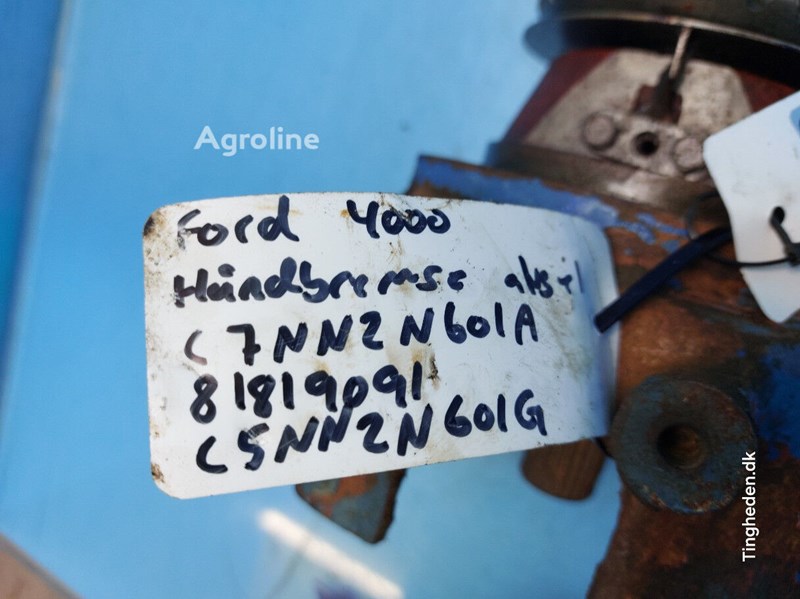 Agroline
Ford 4000
Håndbremse aksel
C7NN2N601A
81819091
C5NN2N601G
Tingheden.dk